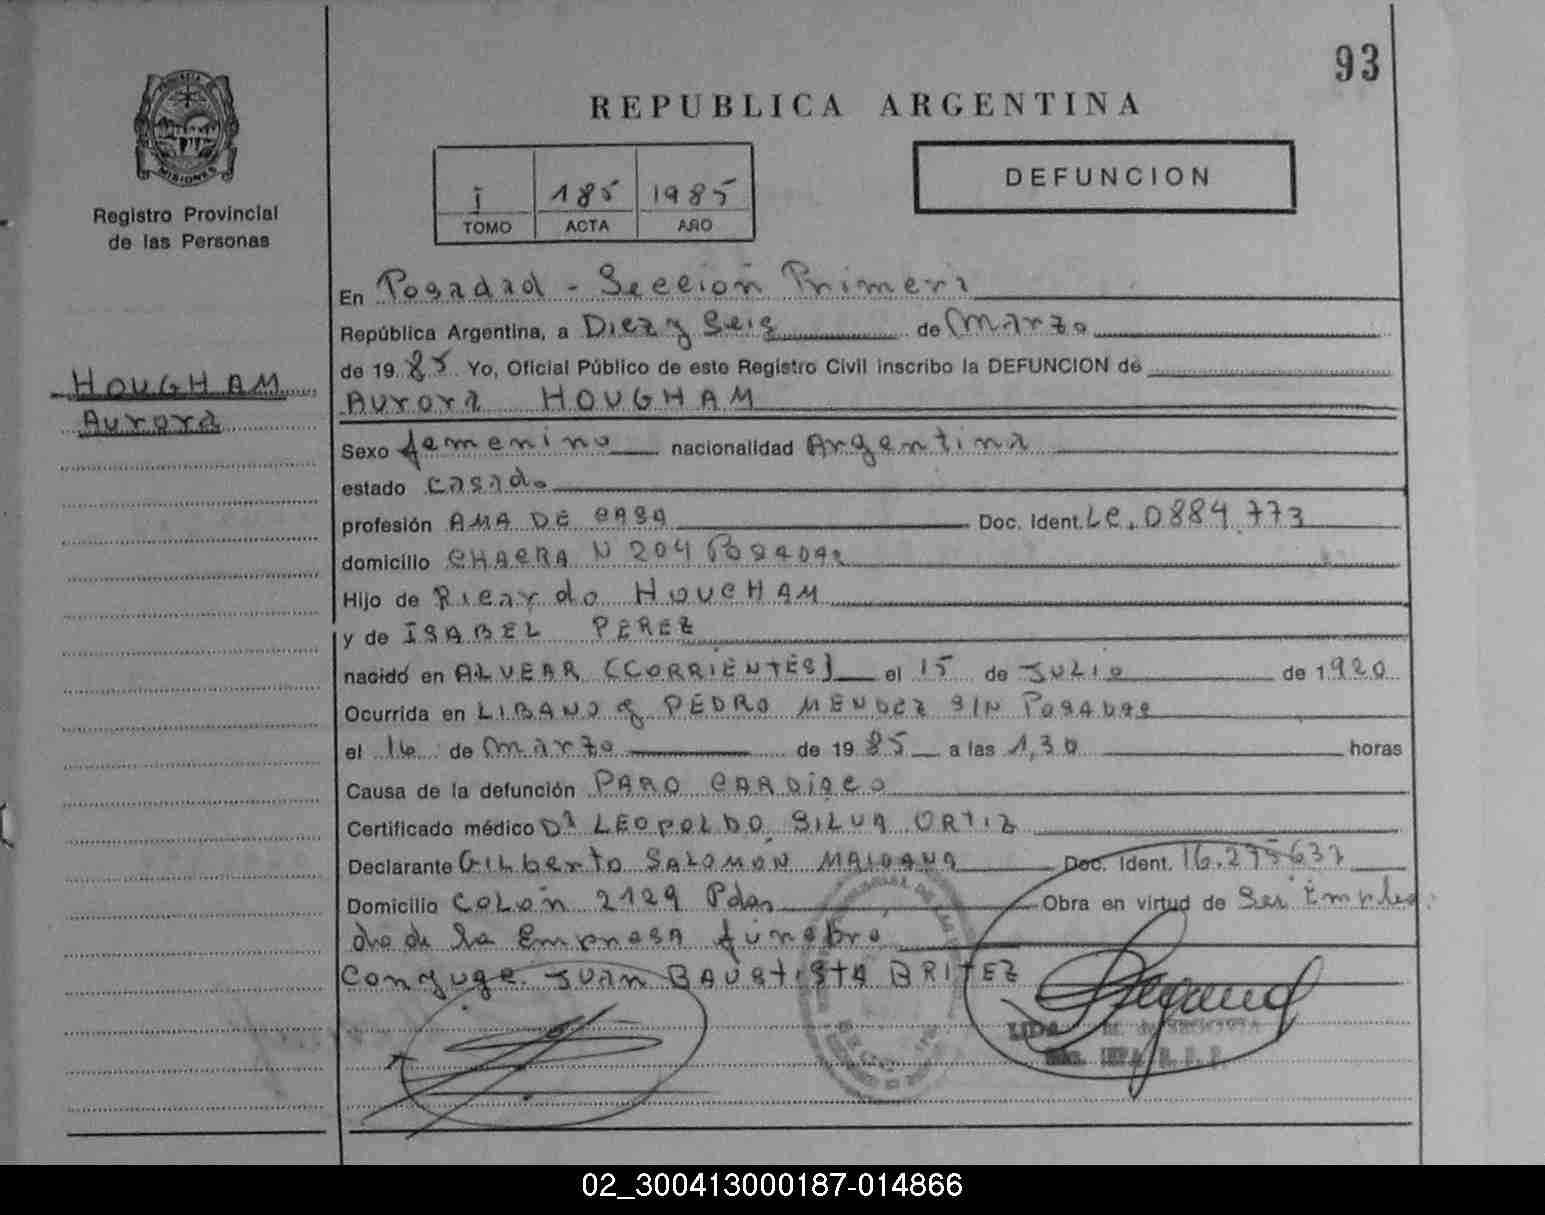 93
REPUBLICA ARGENTINA
PROVINCIA
MISIONES
Registro Provincial
de las Personas
I 185 1985
TOMO ACTA AÑO
DEFUNCION
HOUGHAM
Aurora
En Posadas - Sección Primera
República Argentina, a Diez y Seis de Marzo
de 1985 Yo, Oficial Público de este Registro Civil inscribo la DEFUNCION de
Aurora HOUGHAM
Sexo femenino nacionalidad Argentina
estado casado
profesión AMA DE CASA Doc. Ident. Le. 0884.773
domicilio CHACRA N 204 Posadas
Hijo de Ricardo HOUCHAM
y de ISABEL PEREZ
nacido en ALVEAR (CORRIENTES) el 15 de JULIO de 1920
Ocurrida en LIBANO y PEDRO MENDEZ SIN POSADAS
el 16 de Marzo de 1985 a las 1,30 horas
Causa de la defunción PARO CARDIACO
Certificado médico Dr LEOPOLDO SILVA ORTIZ
Declarante Gilberto SALOMON MAIDANA Doc. Ident. 16.295637
Domicilio COLON 2129 Pdas Obra en virtud de Ser Emplea
do de la Empresa fúnebre
Conyuge JUAN BAUTISTA BRITEZ
LIDA M. de SEGOVIA
02_300413000187-014866